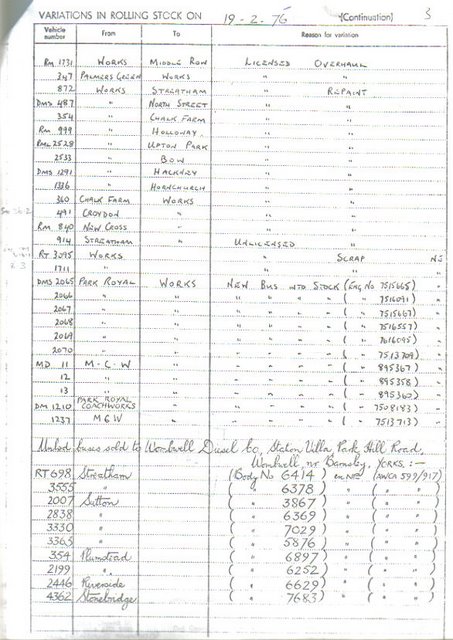 VARIATIONS IN ROLLING STOCK ON 19-2-76 (Continuation) 3
Vehicle number From To Reason for variation
RM 1731 WORKS MIDDLE ROW LICENSED OVERHAUL
347 PALMERS GREEN WORKS " "
872 WORKS STREATHAM " REPAINT
DMS 487 " NORTH STREET " "
354 " CHALK FARM " "
RM 999 " HOLLOWAY " "
RML 2528 " UPTON PARK " "
2533 " BOW " "
DMS 1291 " HACKNEY " "
1336 " HORNCHURCH " "
360 CHALK FARM WORKS " "
491 CROYDON " " "
RM 840 NEW CROSS " " "
914 STREATHAM " UNLICENSED "
RT 3095 WORKS " SCRAP NS
1711 " " " "
DMS 2065 PARK ROYAL WORKS NEW BUS INTO STOCK (ENG NO 7515665) "
2066 " " " " " " ( " " 7516091) "
2067 " " " " " " ( " " 7515667) "
2068 " " " " " " ( " " 7516557) "
2069 " " " " " " ( " " 7616095) "
2070 " " " " " " ( " " 7513709) "
MD 11 M-C-W " " " " " ( " " 895367) "
12 " " " " " " ( " " 895358) "
13 " " " " " " ( " " 895360) "
DM 1210 PARK ROYAL COACHWORKS " " " " " ( " " 7508183) "
1237 MCW " " " " " ( " " 7513713) "
buses sold to Wombwell Diesel Co, Station Villa, Park Hill Road,
Wombwell, nr Barnsley, YORKS. :—
RT 698 Streatham (Body No 6414) (AWCA 599/917)
3555 " ( " 6378 ) " ( " " )
2007 Sutton ( " 3867 ) " ( " " )
2838 " ( " 6369 ) " ( " " )
3330 " ( " 7029 ) " ( " " )
3365 " ( " 5876 ) " ( " " )
354 Plumstead ( " 6897 ) " ( " " )
2199 " ( " 6252 ) " ( " " )
2446 Riverside ( " 6629 ) " ( " " )
4362 Stonebridge ( " 7683 ) " ( " " )